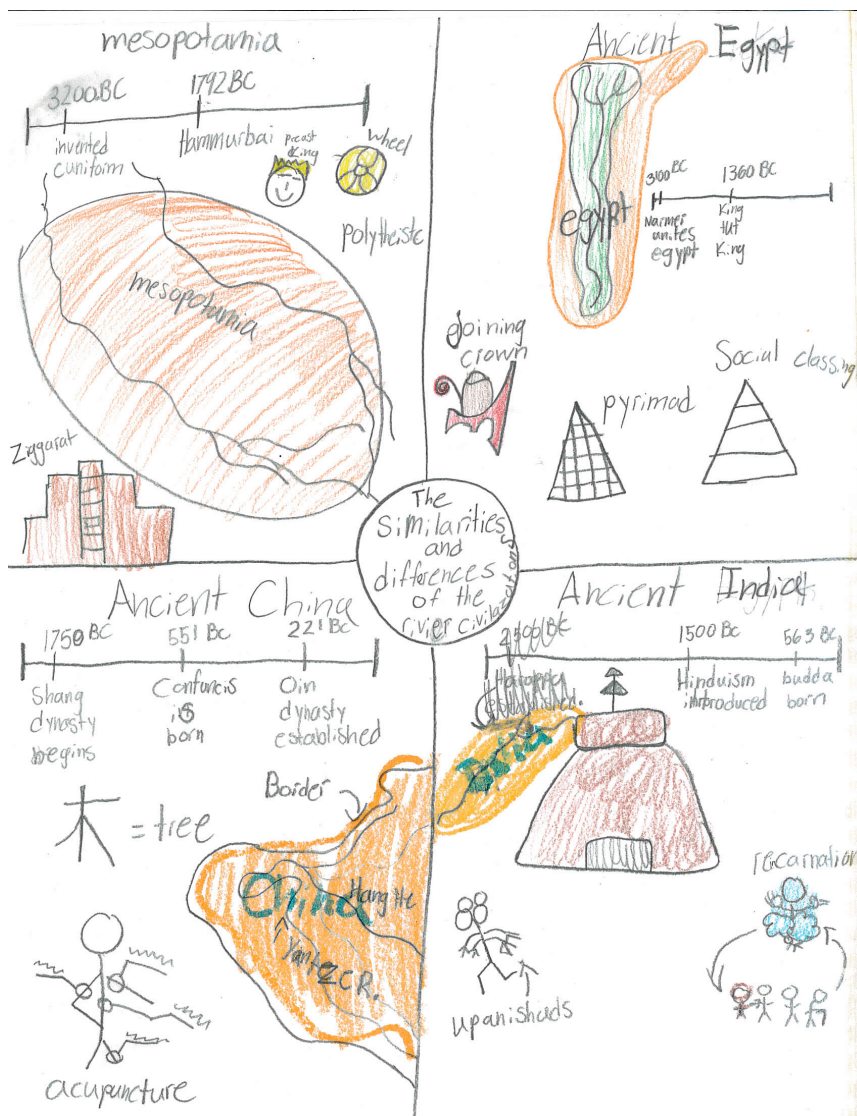 mesopotamia
3200BC
1792BC
invented
cuniform
Hammurbai
preast
king
wheel
polytheistc
mesopotamia
Ziggarat
Ancient Egypt
egypt
3100
BC
1360 BC
Narmer
unites
egypt
King
tut
King
joining
crown
pyrimad
Social classing
The
similarities
and
differences
of the
rivier civilazations
Ancient China
1750 BC
551 BC
221 BC
Shang
dynasty
begins
Confuncis
is
born
Qin
dynasty
established
Border
= tree
China
Hang He
Yantze R.
acupuncture
Ancient India
2500 BC
1500 BC
563 BC
established.
Hinduism
introduced
budda
born
reincarnation
upanishads